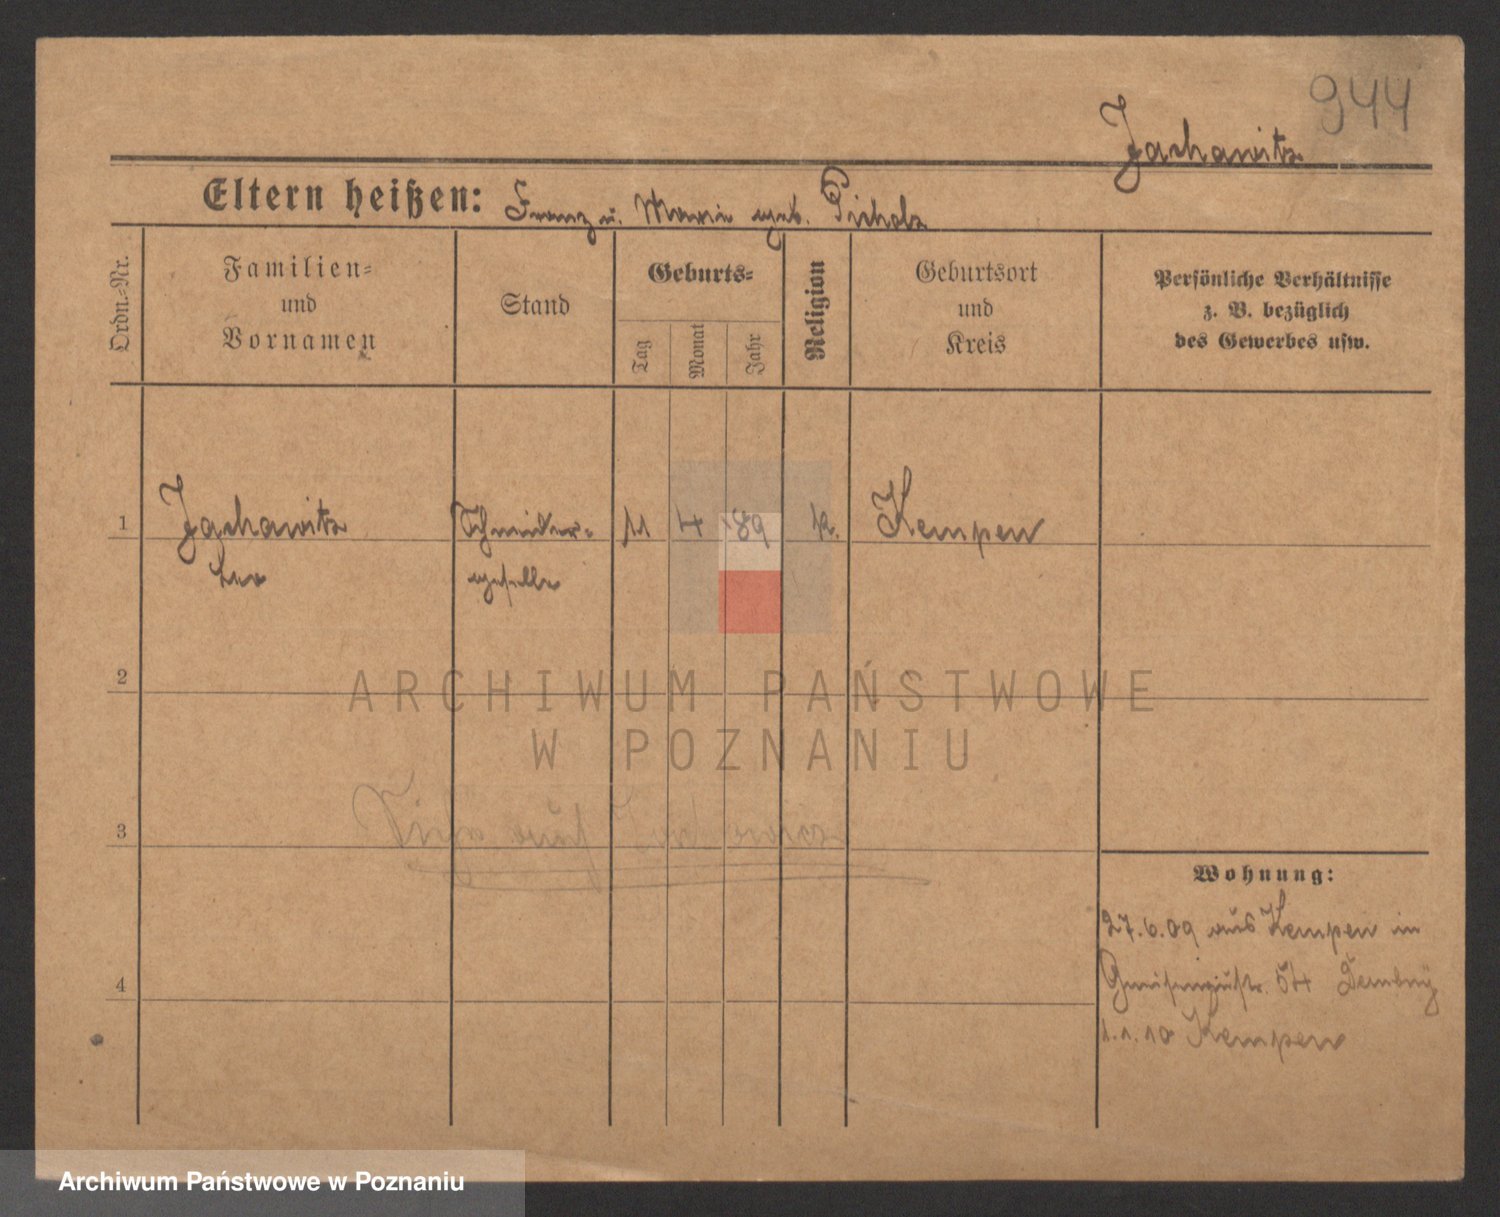 944
Jachowitz
Eltern heißen: Franz u. Marie geb. Picholz
Ordn.=Nr.
Familien=
und
Vornamen
Stand
Geburts=
Tag
Monat
Jahr
Religion
Geburtsort
und
Kreis
Persönliche Verhältnisse
z. B. bezüglich
des Gewerbes usw.
1
Jachowitz
Leo
Schneider=
geselle
11
4
89
k.
Kempen
2
ARCHIWUM PAŃSTWOWE
W POZNANIU
3
4
Wohnung:
27.6.09 aus Kempen in
Gneisenaustr. 54
1.1.10 Kempen
Archiwum Państwowe w Poznaniu